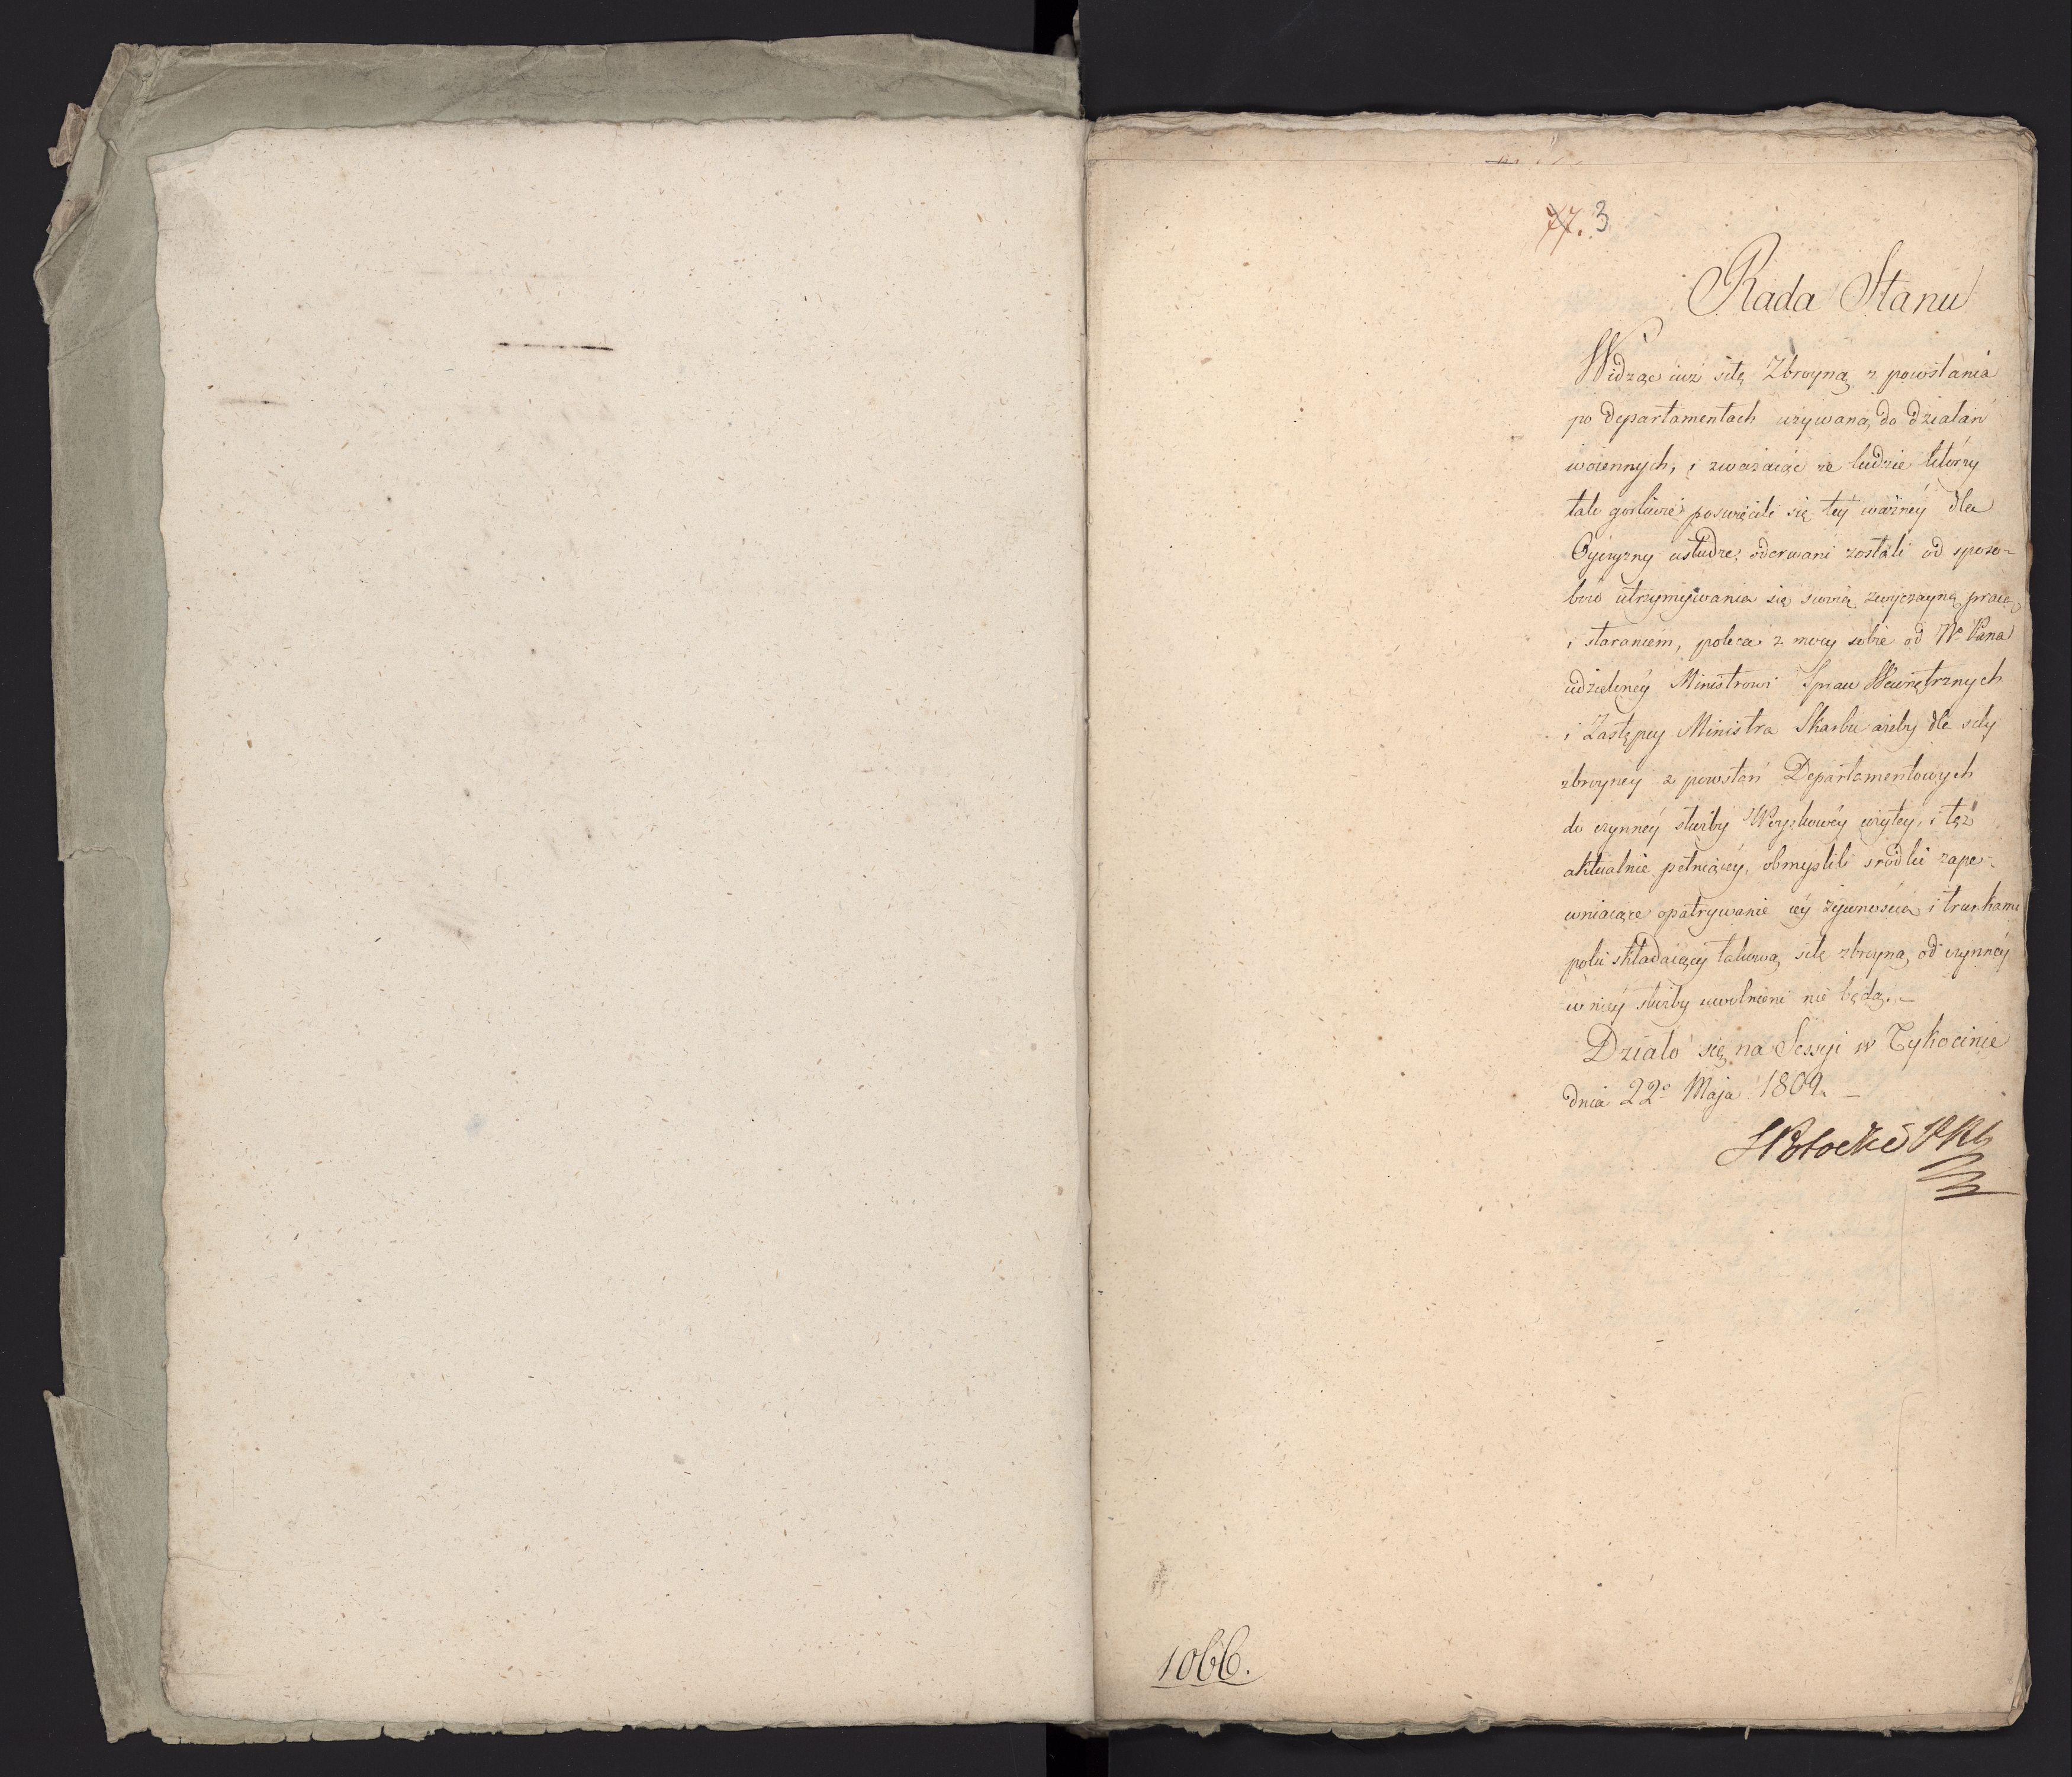 77. 3
Rada Stanu
Widząc iuż siłę Zbroyną z powstania
po departamentach używaną do działań
woiennych, i zważaiąc że ludzie którzy
tak gorliwie poswięcili się tey ważney dla
Oyczyzny usłudze, oderwani zostali od sposo-
bów utrzymywania się swoią zwyczayną pracą
i staraniem, poleca z mocy sobie od Nº Pana
udzieloney Ministrowi Spraw Wewnętrznych
i Zastępcy Ministra Skarbu ażeby dla siły
zbroyney z powstań Departamentowych
do czynney służby Woyskowey wziętey, i tęż
aktualnie pełniącey, obmyslili srodki zape-
wniaiące opatrywanie iey żywnoscią i trunkami
poki składaiący takową siłę zbroyną od czynney
w niey służby uwolnieni nie będą. –
Działo się na Sessyi w Tykocinie
dnia 22º Maja 1809. –
SPotocki
1066.